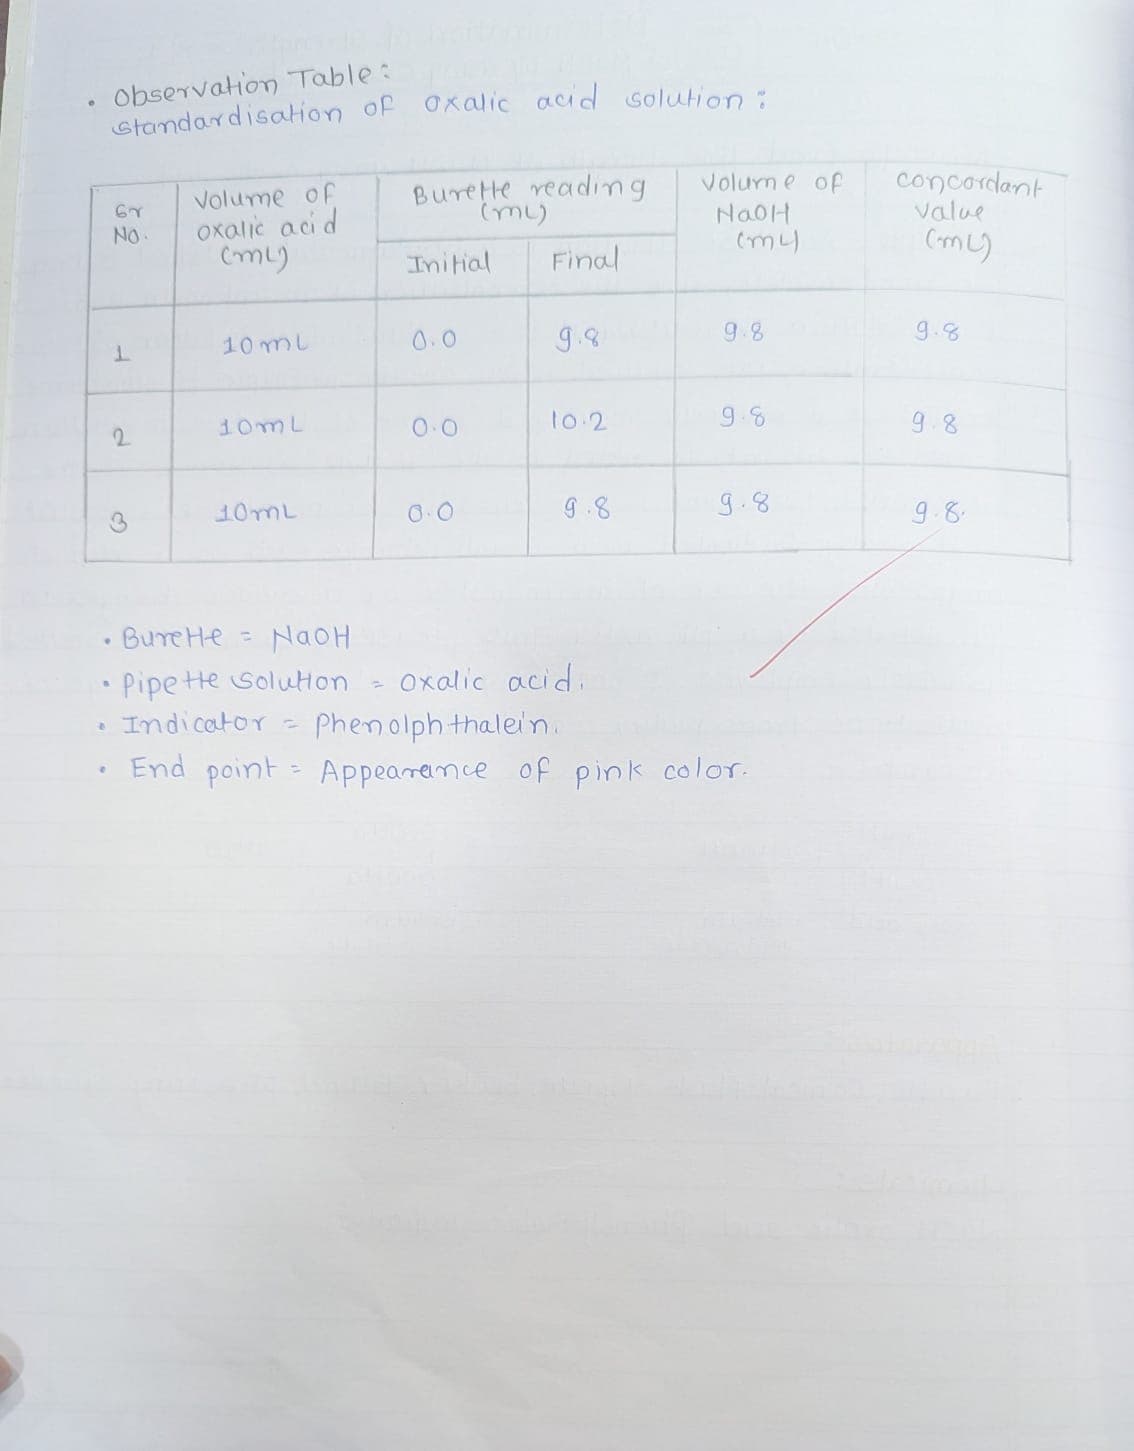 • Observation Table:
Standardisation of oxalic acid solution:
Sr No. | Volume of oxalic acid (mL) | Burette reading (mL) | Volume of NaOH (mL) | concordant value (mL)
Initial | Final
1 | 10 mL | 0.0 | 9.8 | 9.8 | 9.8
2 | 10 mL | 0.0 | 10.2 | 9.8 | 9.8
3 | 10 mL | 0.0 | 9.8 | 9.8 | 9.8.
• Burette = NaOH
• Pipette solution = oxalic acid.
• Indicator = Phenolphthalein.
• End point = Appearance of pink color.